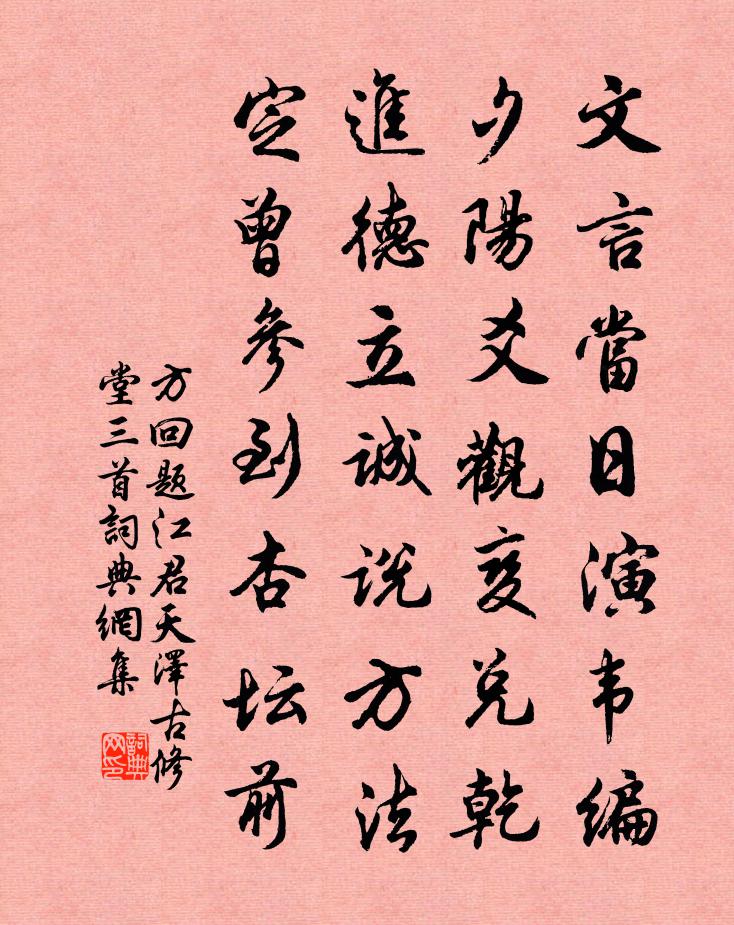 文言當日演韦编
夕陽爻觀变兑乾
進德立誠说方法
定曾參到杏坛前
方回题江君天澤古修
堂三首詞典網集
詞典网印